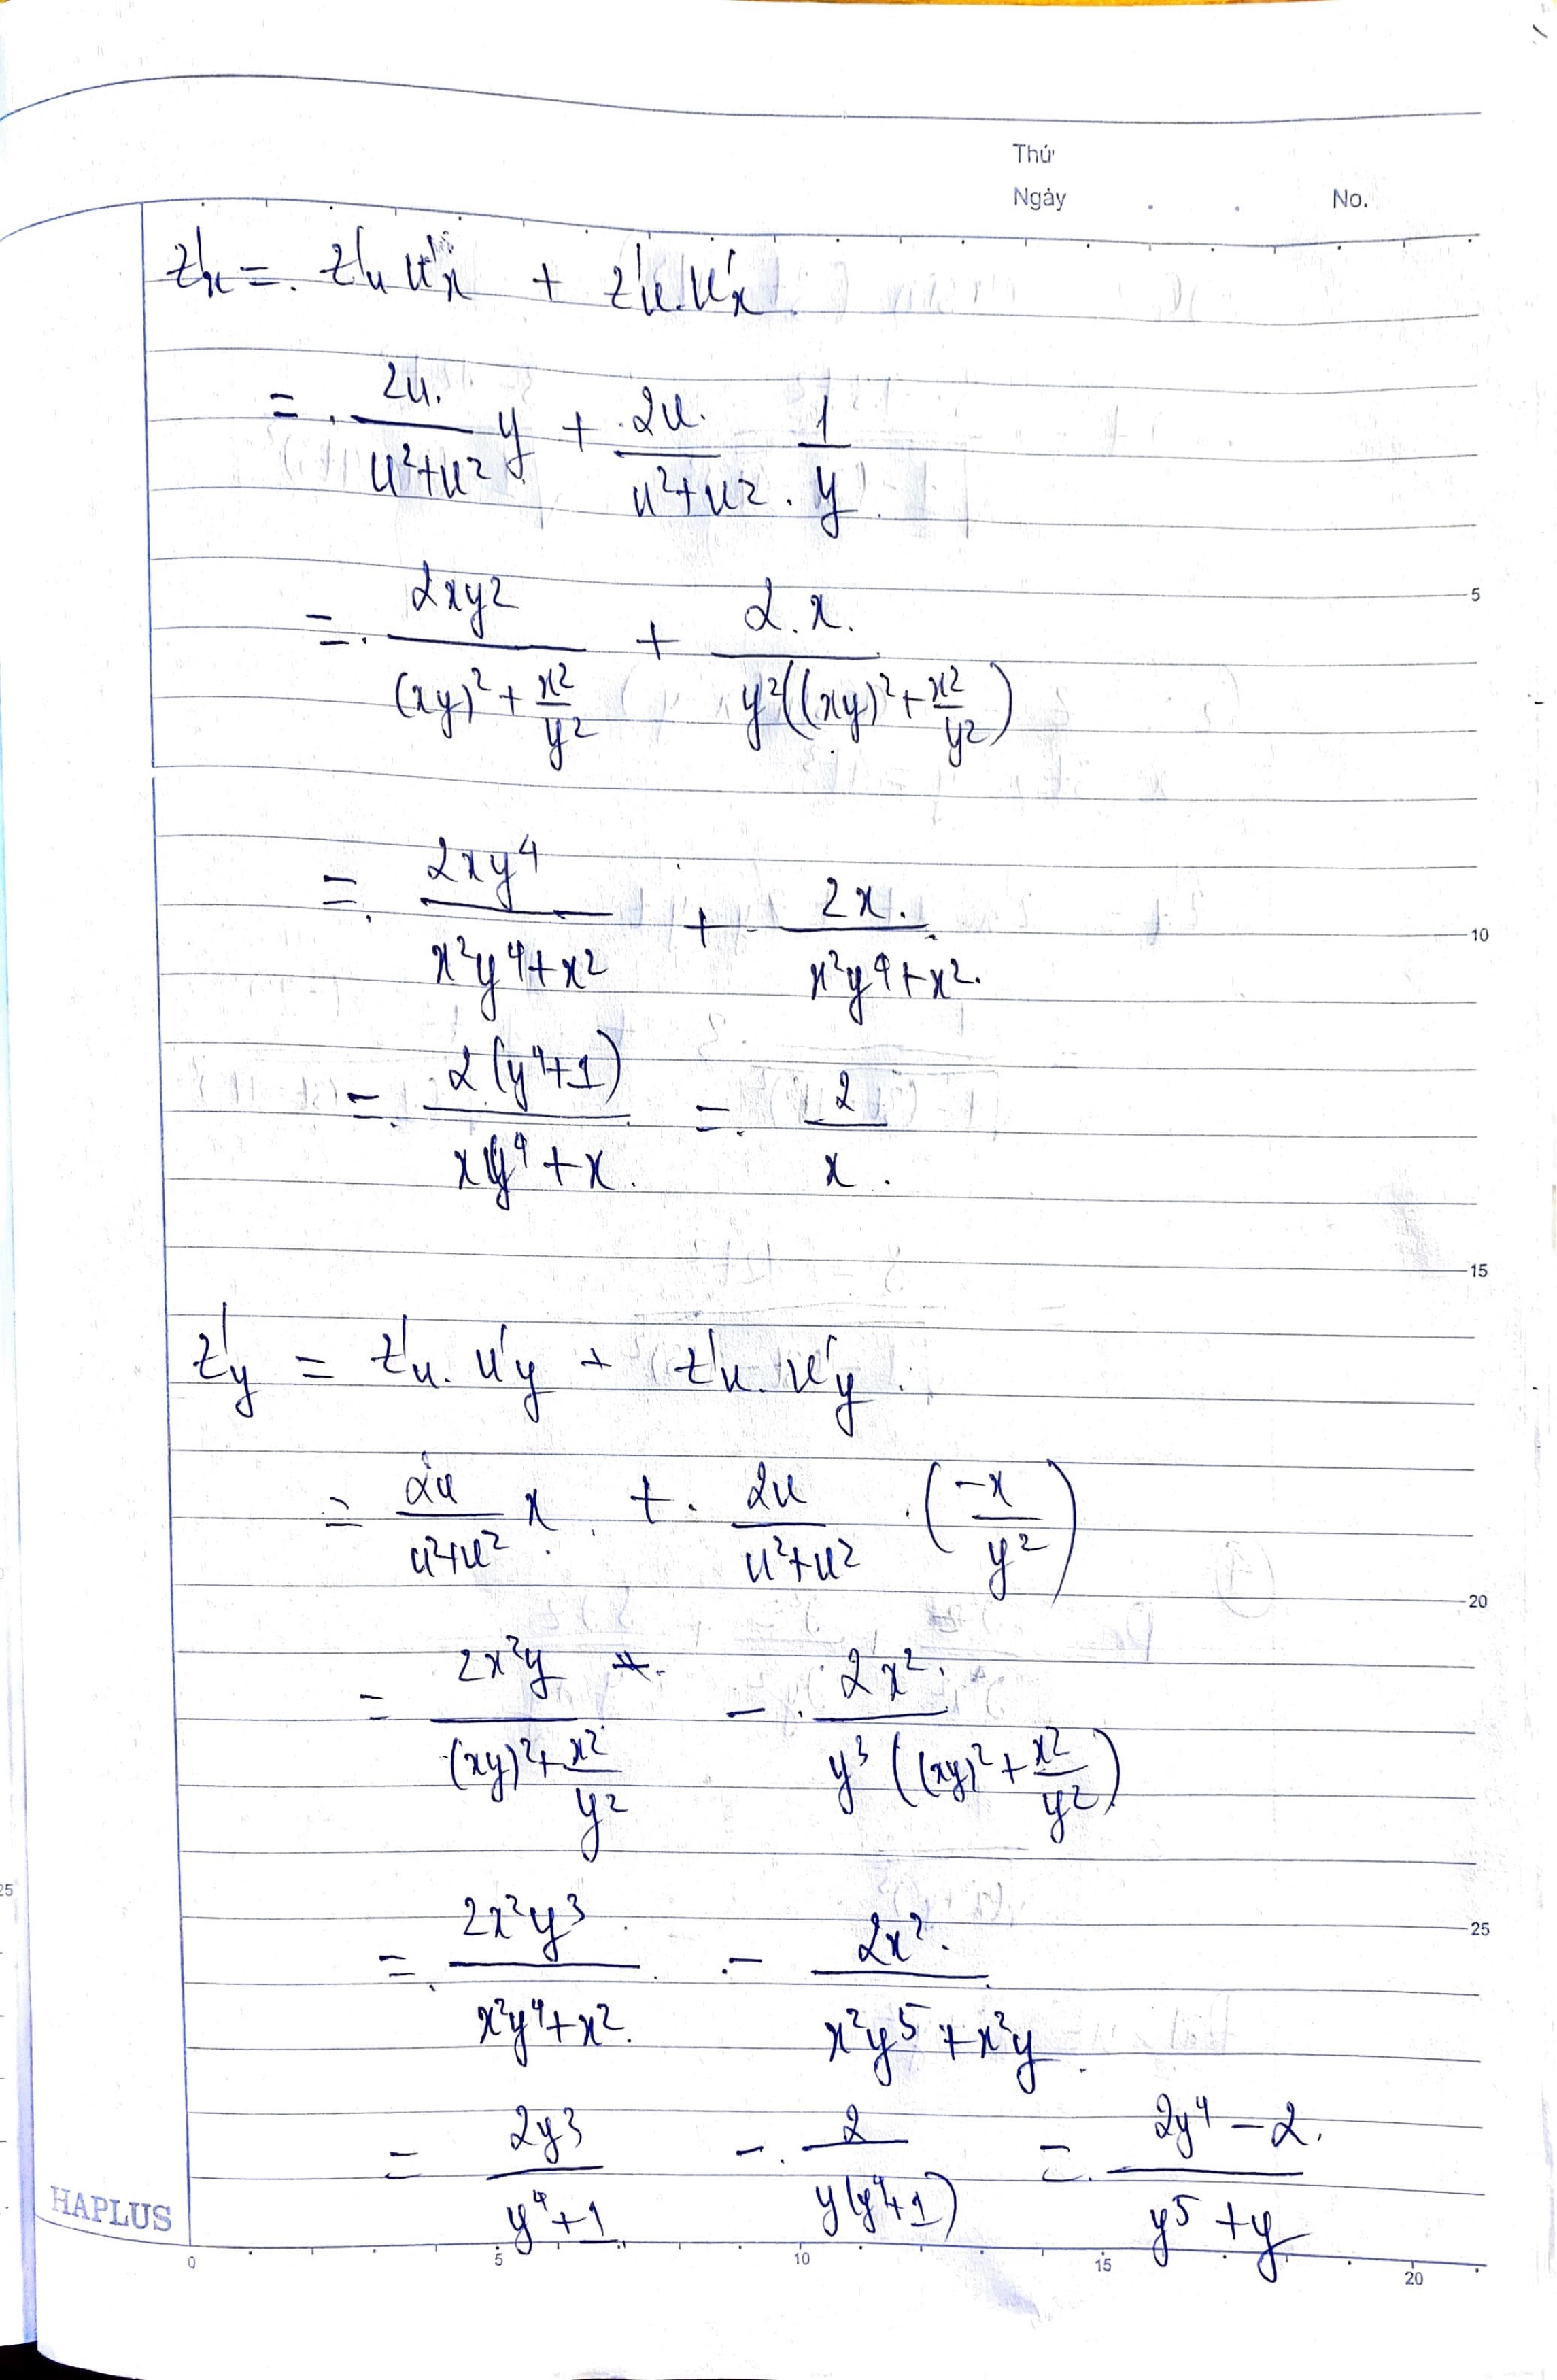 Thứ
Ngày . . No.
z'x = z'u u'x + z'v. v'x
= 2u/(u²+v²) y + 2v/(u²+v²) . 1/y
= 2xy²/((xy)² + x²/y²) + 2.x./(y²((xy)² + x²/y²))
5
= 2xy⁴/(x²y⁴+x²) + 2x./(x²y⁴+x².)
10
= 2(y⁴+1)/(xy⁴+x.) = 2/x.
15
z'y = z'u. u'y + z'v. v'y.
= 2u/(u²+v²) x + 2v/(u²+v²) . (-x/y²)
20
= 2x²y/((xy)² + x²/y²) - 2x²/(y³((xy)² + x²/y²))
= 2x²y³/(x²y⁴+x².) - 2x²/(x²y⁵+x²y)
25
= 2y³/(y⁴+1) - 2/(y(y⁴+1)) = (2y⁴-2)/(y⁵+y)
HAPLUS
0 5 10 15 20
25